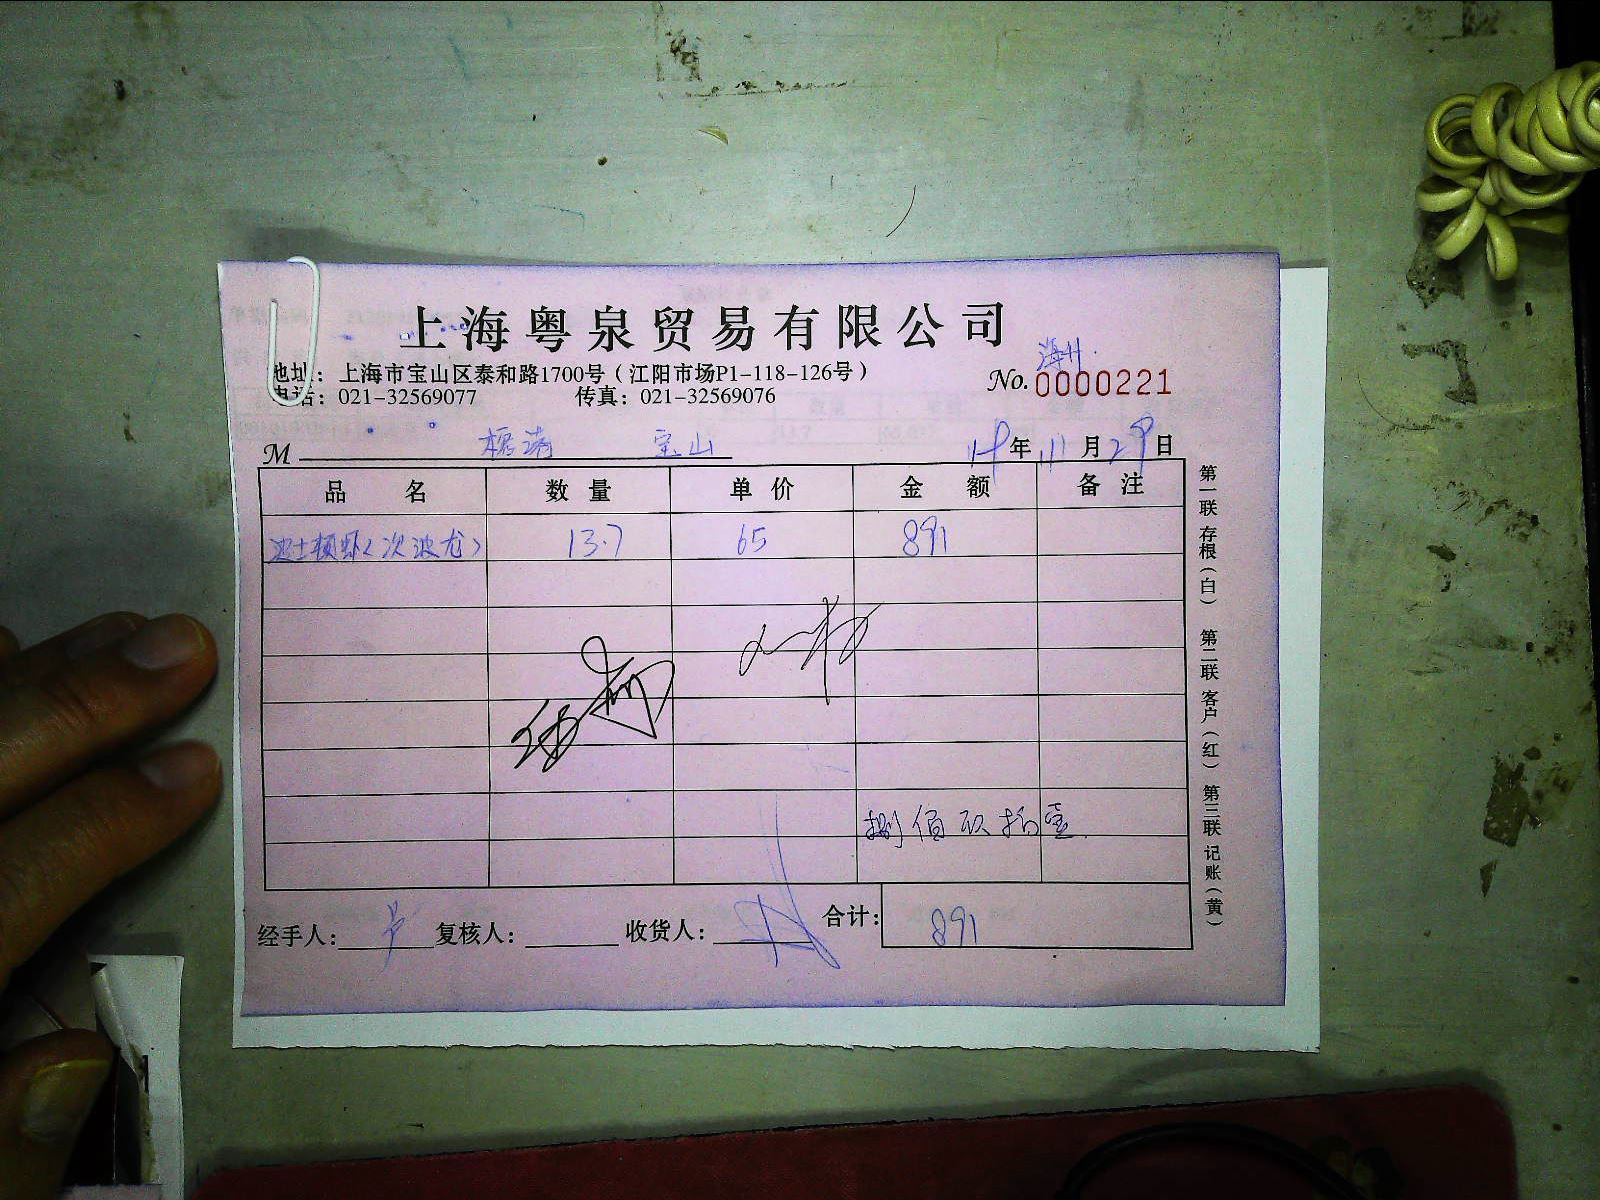 上海粤泉贸易有限公司
地址：上海市宝山区泰和路1700号（江阳市场P1-118-126号）
电话：021-32569077 传真：021-32569076
No. 0000221
M 宝山
年 11 月 29 日
品名 数量 单价 金额 备注
波士顿虾(次波龙) 13.7 65 891
捌佰玖拾壹
经手人： 卢 复核人： 收货人： 合计： 891
第一联 存根（白） 第二联 客户（红） 第三联 记账（黄）